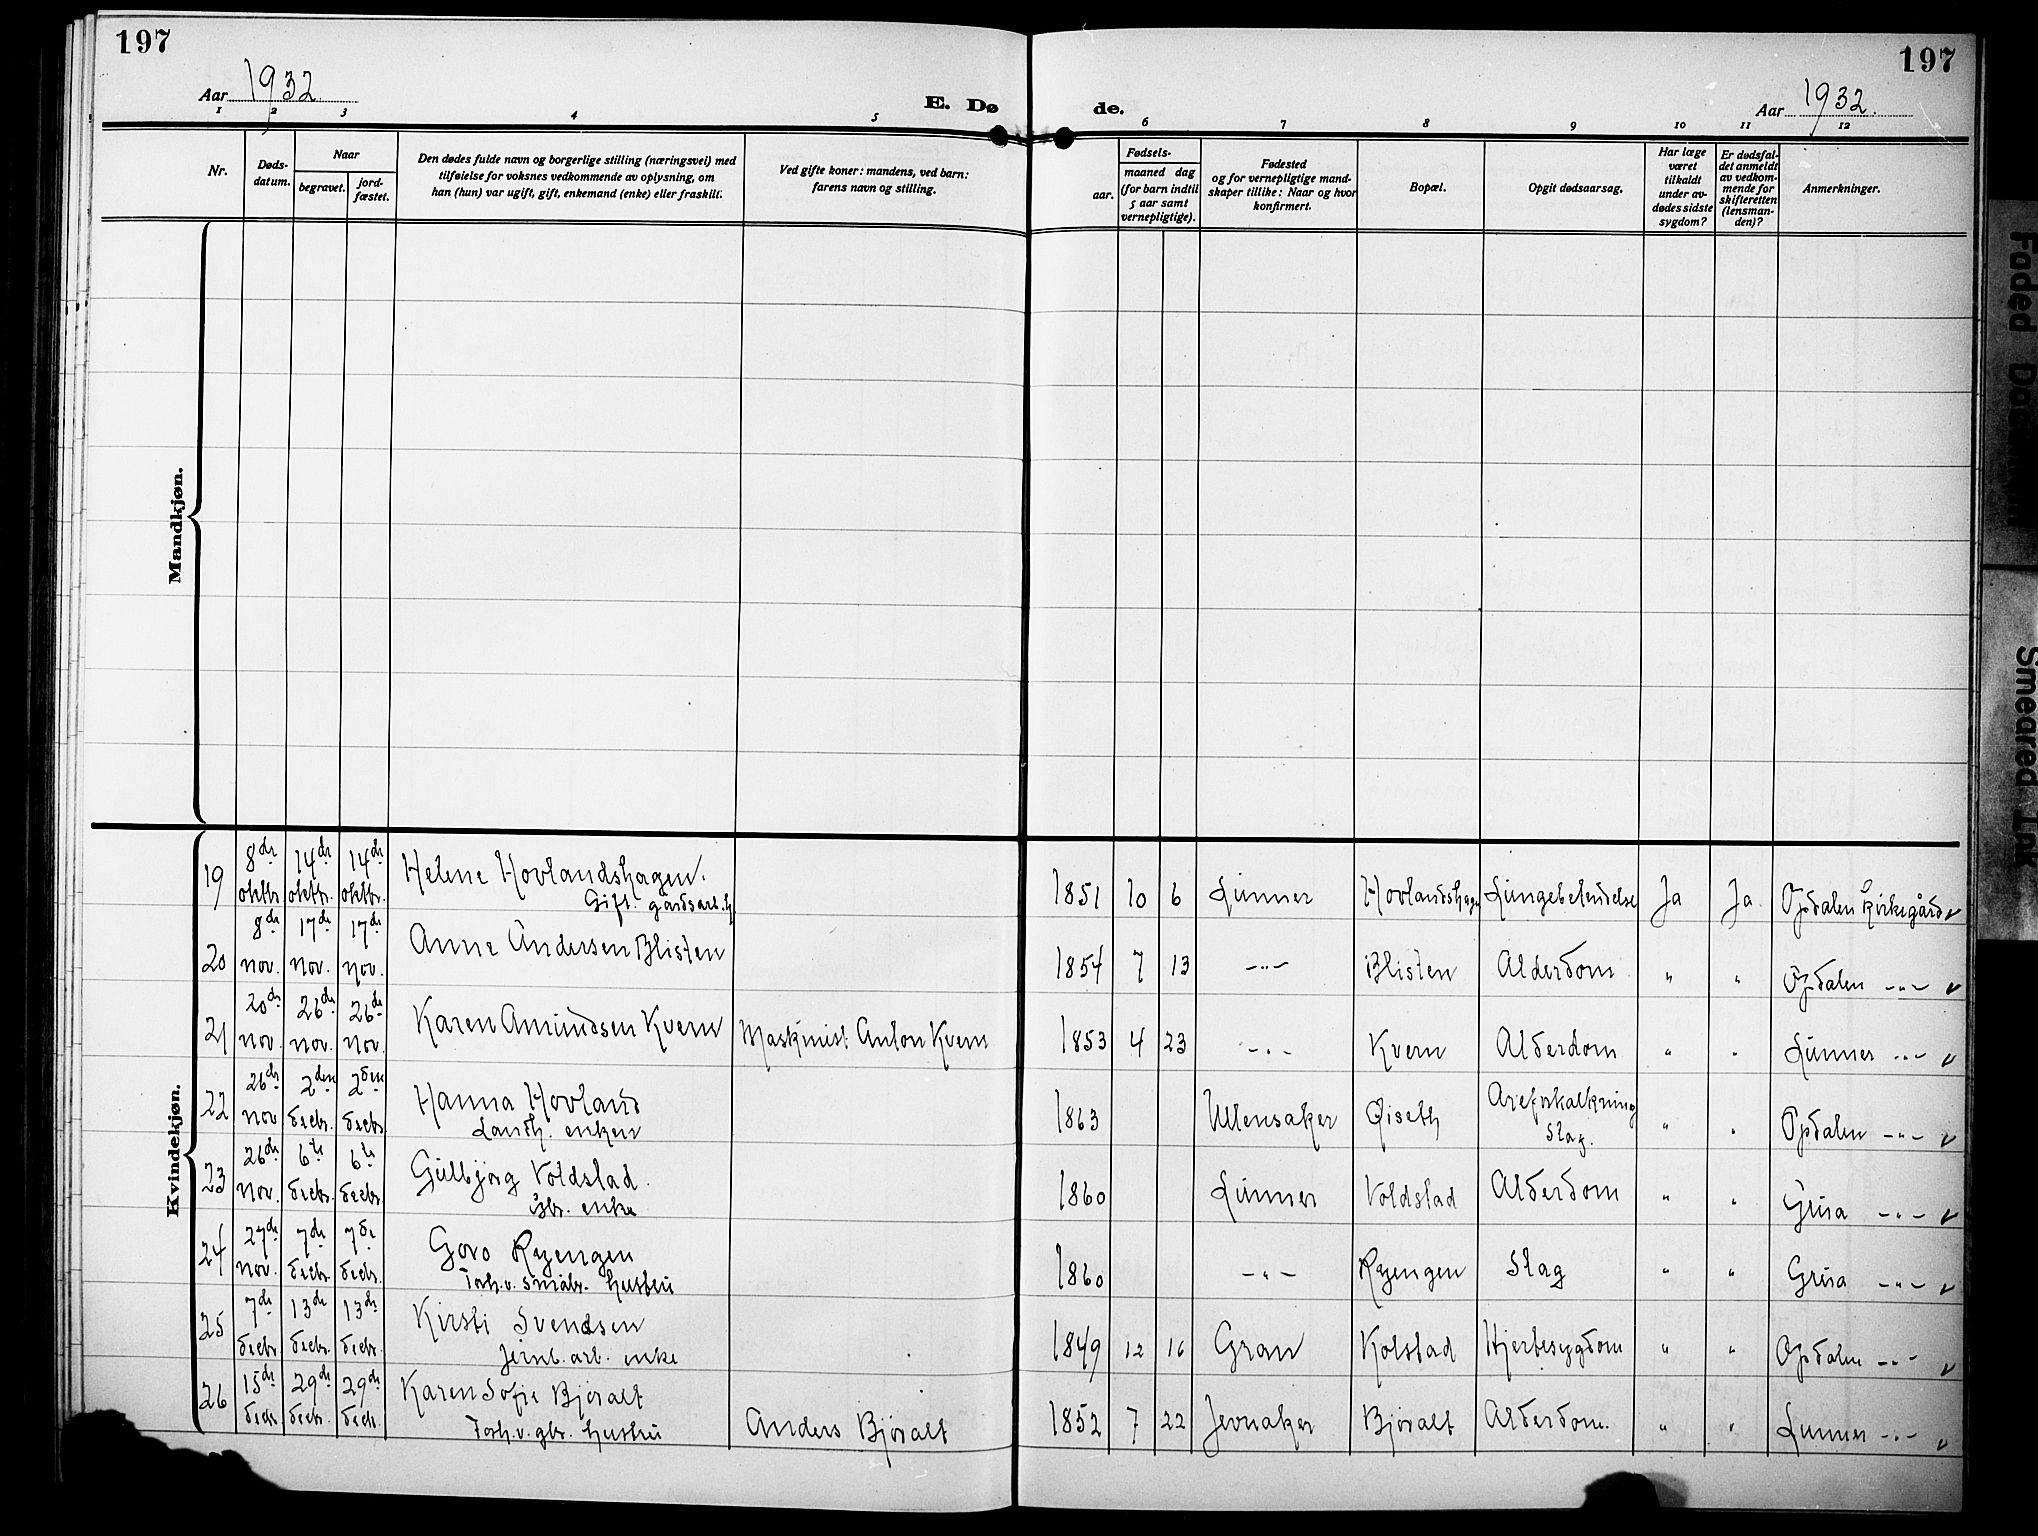 197
197
Aar 1932.
E. Dø
de.
Aar 1932.
1 2 3 4 5 6 7 8 9 10 11 12
Nr.
Døds-
datum.
Naar
begravet.
jord-
fæstet.
Den dødes fulde navn og borgerlige stilling (næringsvei) med
tilføielse for voksnes vedkommende av oplysning, om
han (hun) var ugift, gift, enkemand (enke) eller fraskilt.
Ved gifte koner: mandens, ved barn:
farens navn og stilling.
Fødsels-
aar.
maaned dag
(for barn indtil
5 aar samt
vernepligtige).
Fødested
og for vernepligtige mand-
skaper tillike: Naar og hvor
konfirmert.
Bopæl.
Opgit dødsaarsag.
Har læge
været
tilkaldt
under av-
dødes sidste
sygdom?
Er dødsfal-
det anmeldt
av vedkom-
mende for
skifteretten
(lensman-
den)?
Anmerkninger.
Mandkjøn.
Kvindekjøn.
19 8de oktbr. 14de oktbr. 14de oktbr. Helene Hovlandshagen.
Gift. gårdsarb. h.
1851 10 6 Lunner Hovlandshagen Lungebetendelse Ja Ja Opdalen kirkegård
20 8de nov. 17de nov. 17de nov. Anne Andersen Blisten
1854 7 13 -"- Blisten Alderdom " " Opdalen -"-
21 20de nov. 26de nov. 26de nov. Karen Amundsen Kvern Maskinist Anton Kvern
1853 4 23 -"- Kvern Alderdom " " Lunner -"-
22 26de nov 2den decbr. 2den decbr. Hanna Hovland
Landh. enken
1863 Ullensaker Øiseth Areforkalkning
Slag. " " Opdalen -"-
23 26de nov. 6te decbr. 6te decbr. Gulbjørg Voldstad
gbr. enke
1860 Lunner Voldstad Alderdom " " Grua -"-
24 27de nov. 7de decbr. 7de decbr. Goro Ryengen
Forh.v. småbr. hustru
1860 -"- Ryengen Slag " " Grua -"-
25 7de decbr. 13de decbr. 13de decbr. Kirsti Svendsen
jernb. arb. enke
1849 12 16 Gran Kolstad Hjertesygdom " " Opdalen -"-
26 15de decbr. 29de decbr. 29de decbr. Karen Sofie Bjøralt
Forh.v. gbr. hustru Anders Bjøralt
1852 7 22 Jevnaker Bjøralt Alderdom. " " Lunner -"-
Smeared Ink